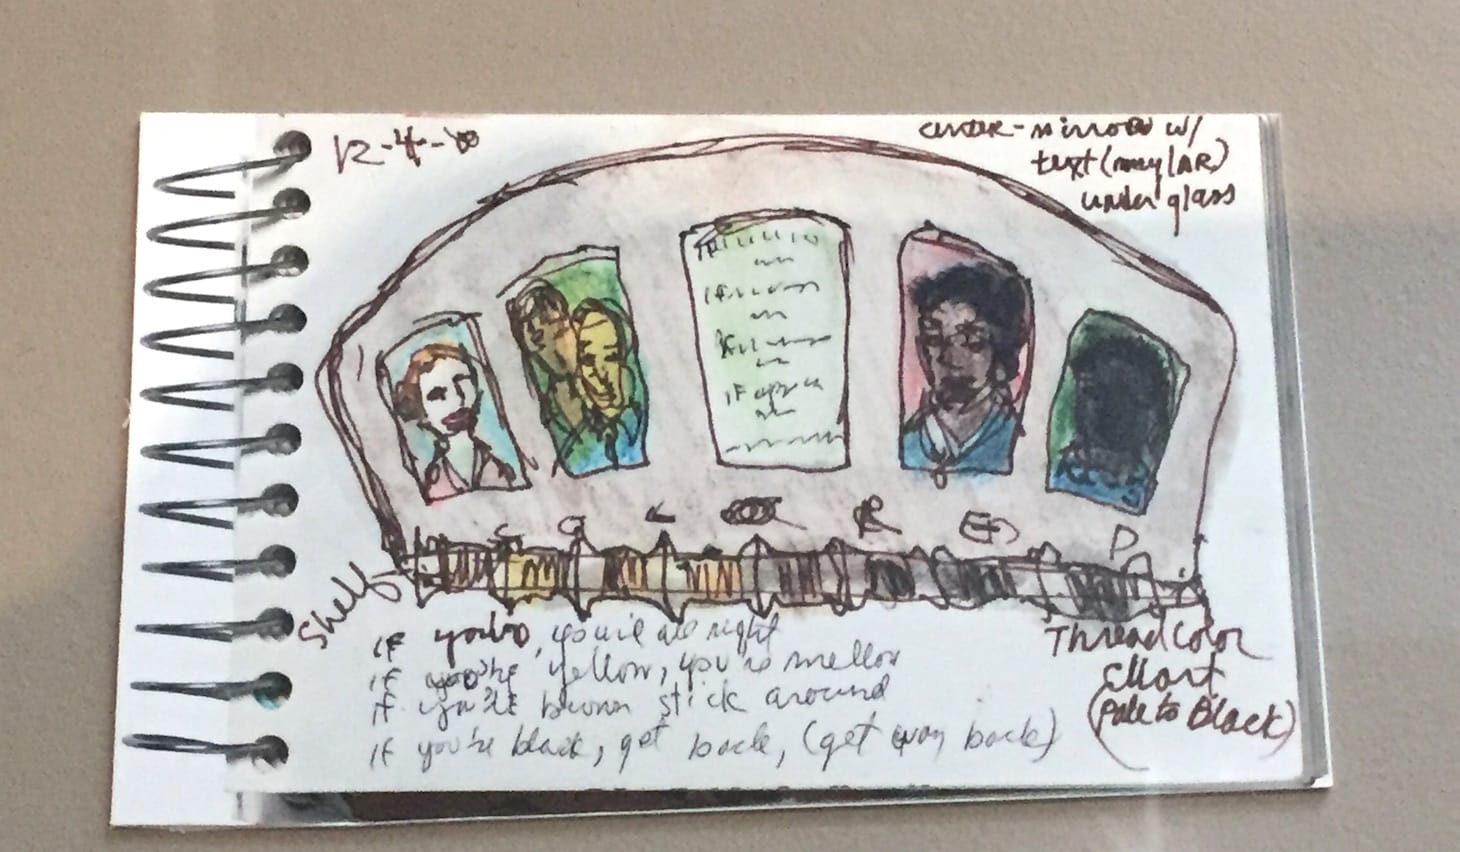 12-4-
center-mirror w/
text (mylAR)
under glass
Shelf
If , you're all right
if you're yellow, you're mellow
if you're brown stick around
if you're black, get back, (get way back)
Thread Color
Chart
(Pale to Black)